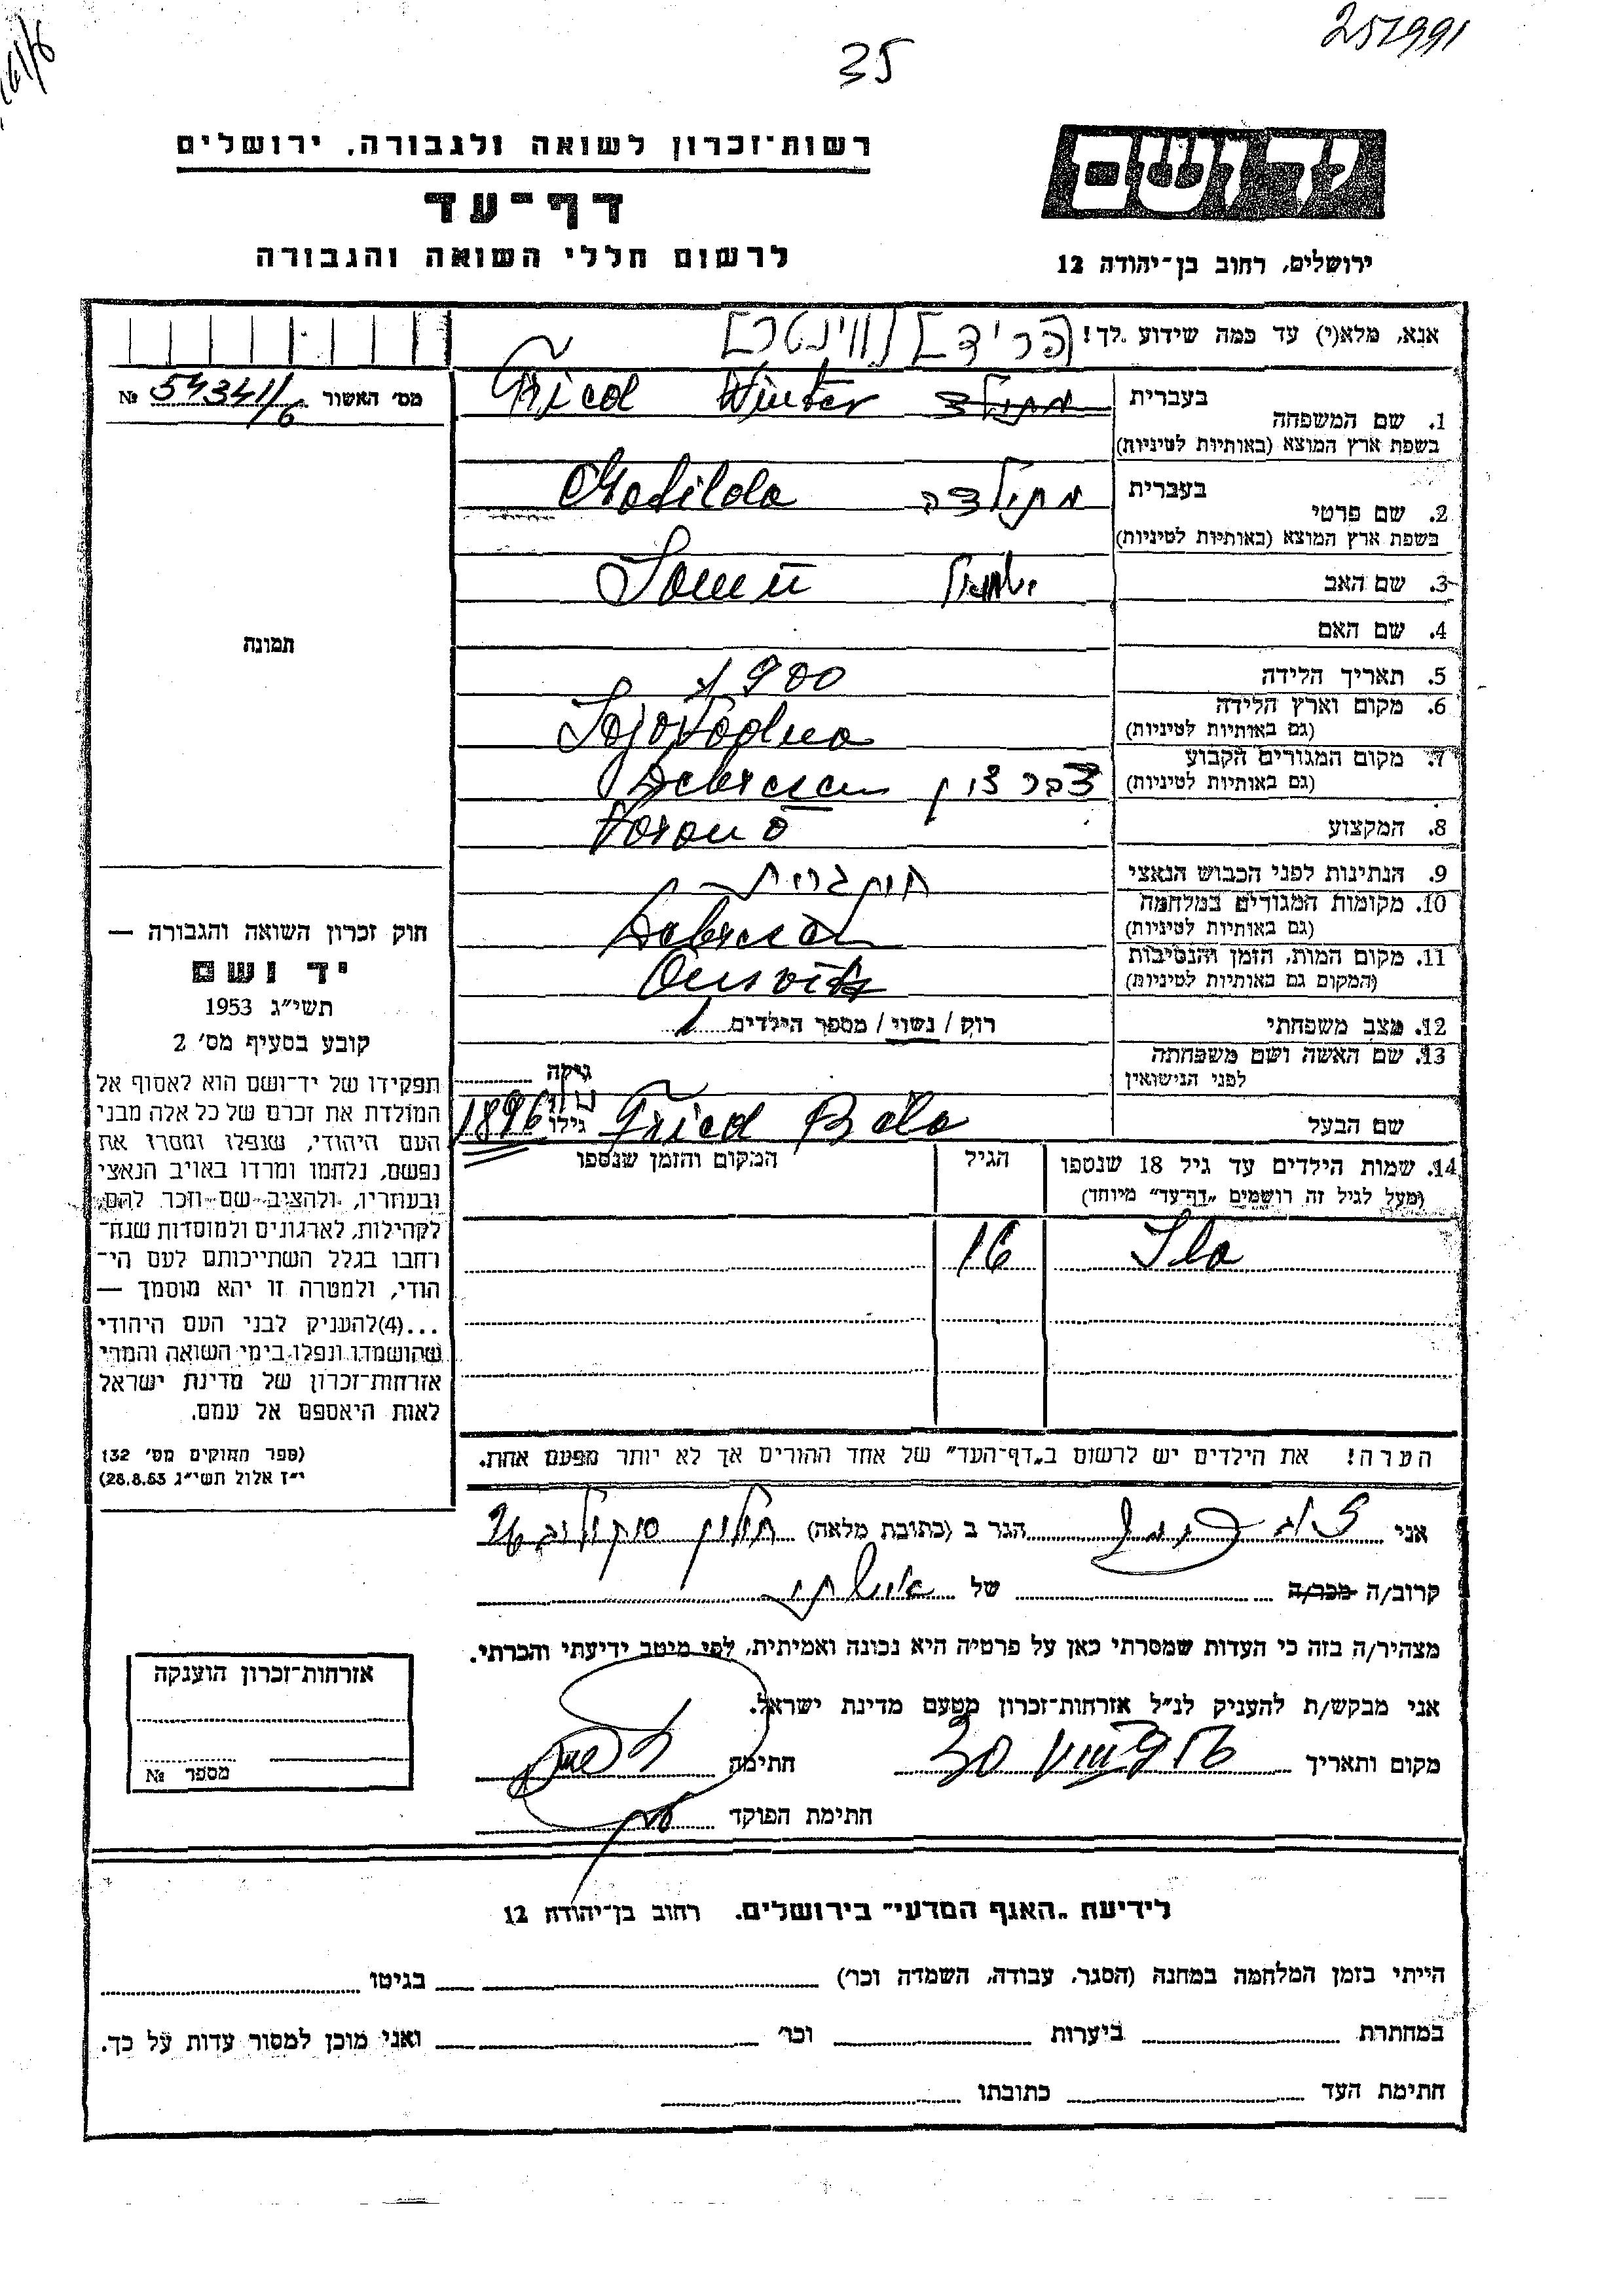 251991
35
רשות־זכרון לשואה ולגבורה, ירושלים
דף־עד
לרשום חללי השואה והגבורה
ידושם
ירושלים, רחוב בן־יהודה 12
אנא, מלא(י) עד כמה שידוע לך! [פריד] [ווינטר]
מס׳ האשור № 54341/6
1. שם המשפחה
בעברית
בשפת ארץ המוצא (באותיות לטיניות)
Fried Winter
2. שם פרטי
בעברית
בשפת ארץ המוצא (באותיות לטיניות)
מתילדה Matilda
3. שם האב
4. שם האם
5. תאריך הלידה 1900
6. מקום וארץ הלידה
(גם באותיות לטיניות)
7. מקום המגורים הקבוע
(גם באותיות לטיניות)
דברצון Debrecen
8. המקצוע
9. הנתינות לפני הכבוש הנאצי
הונגרית
10. מקומות המגורים במלחמה
(גם באותיות לטיניות)
Debrecen
11. מקום המות, הזמן והנסיבות
(המקום גם באותיות לטיניות)
12. מצב משפחתי רווק / נשוי / מספר הילדים 1
13. שם האשה ושם משפחתה
לפני הנישואין
גילה
שם הבעל Fried Bela גילו 1896
14. שמות הילדים עד גיל 18 שנספו
(מעל לגיל זה רושמים „דף־עד״ מיוחד)
הגיל
המקום והזמן שנספו
16
הערה! את הילדים יש לרשום ב„דף־העד״ של אחד ההורים אך לא יותר מפעם אחת.
תמונה
חוק זכרון השואה והגבורה —
יד ושם
תשי״ג 1953
קובע בסעיף מס׳ 2
תפקידו של יד־ושם הוא לאסוף אל
המולדת את זכרם של כל אלה מבני
העם היהודי, שנפלו ומסרו את
נפשם, נלחמו ומרדו באויב הנאצי
ובעוזריו, ולהציב שם וזכר להם,
לקהילות, לארגונים ולמוסדות שנח־
רבו בגלל השתייכותם לעם הי־
הודי, ולמטרה זו יהא מוסמך —
...(4)להעניק לבני העם היהודי
שהושמדו ונפלו בימי השואה והמרי
אזרחות־זכרון של מדינת ישראל
לאות היאספם אל עמם.
(ספר החוקים מס׳ 132
י״ז אלול תשי״ג 28.8.53)
אני הגר ב (כתובת מלאה) חולון סוקולוב 26
קרוב/ה מכר/ה של
מצהיר/ה בזה כי העדות שמסרתי כאן על פרטיה היא נכונה ואמיתית, לפי מיטב ידיעתי והכרתי.
אני מבקש/ת להעניק לנ״ל אזרחות־זכרון מטעם מדינת ישראל.
מקום ותאריך חתימה
חתימת הפוקד
אזרחות־זכרון הוענקה
מספר №
לידיעת „האגף המדעי״ בירושלים, רחוב בן־יהודה 12
הייתי בזמן המלחמה במחנה (הסגר, עבודה, השמדה וכו׳) בגיטו
במחתרת ביערות וכו׳ ואני מוכן למסור עדות על כך.
חתימת העד כתובתו